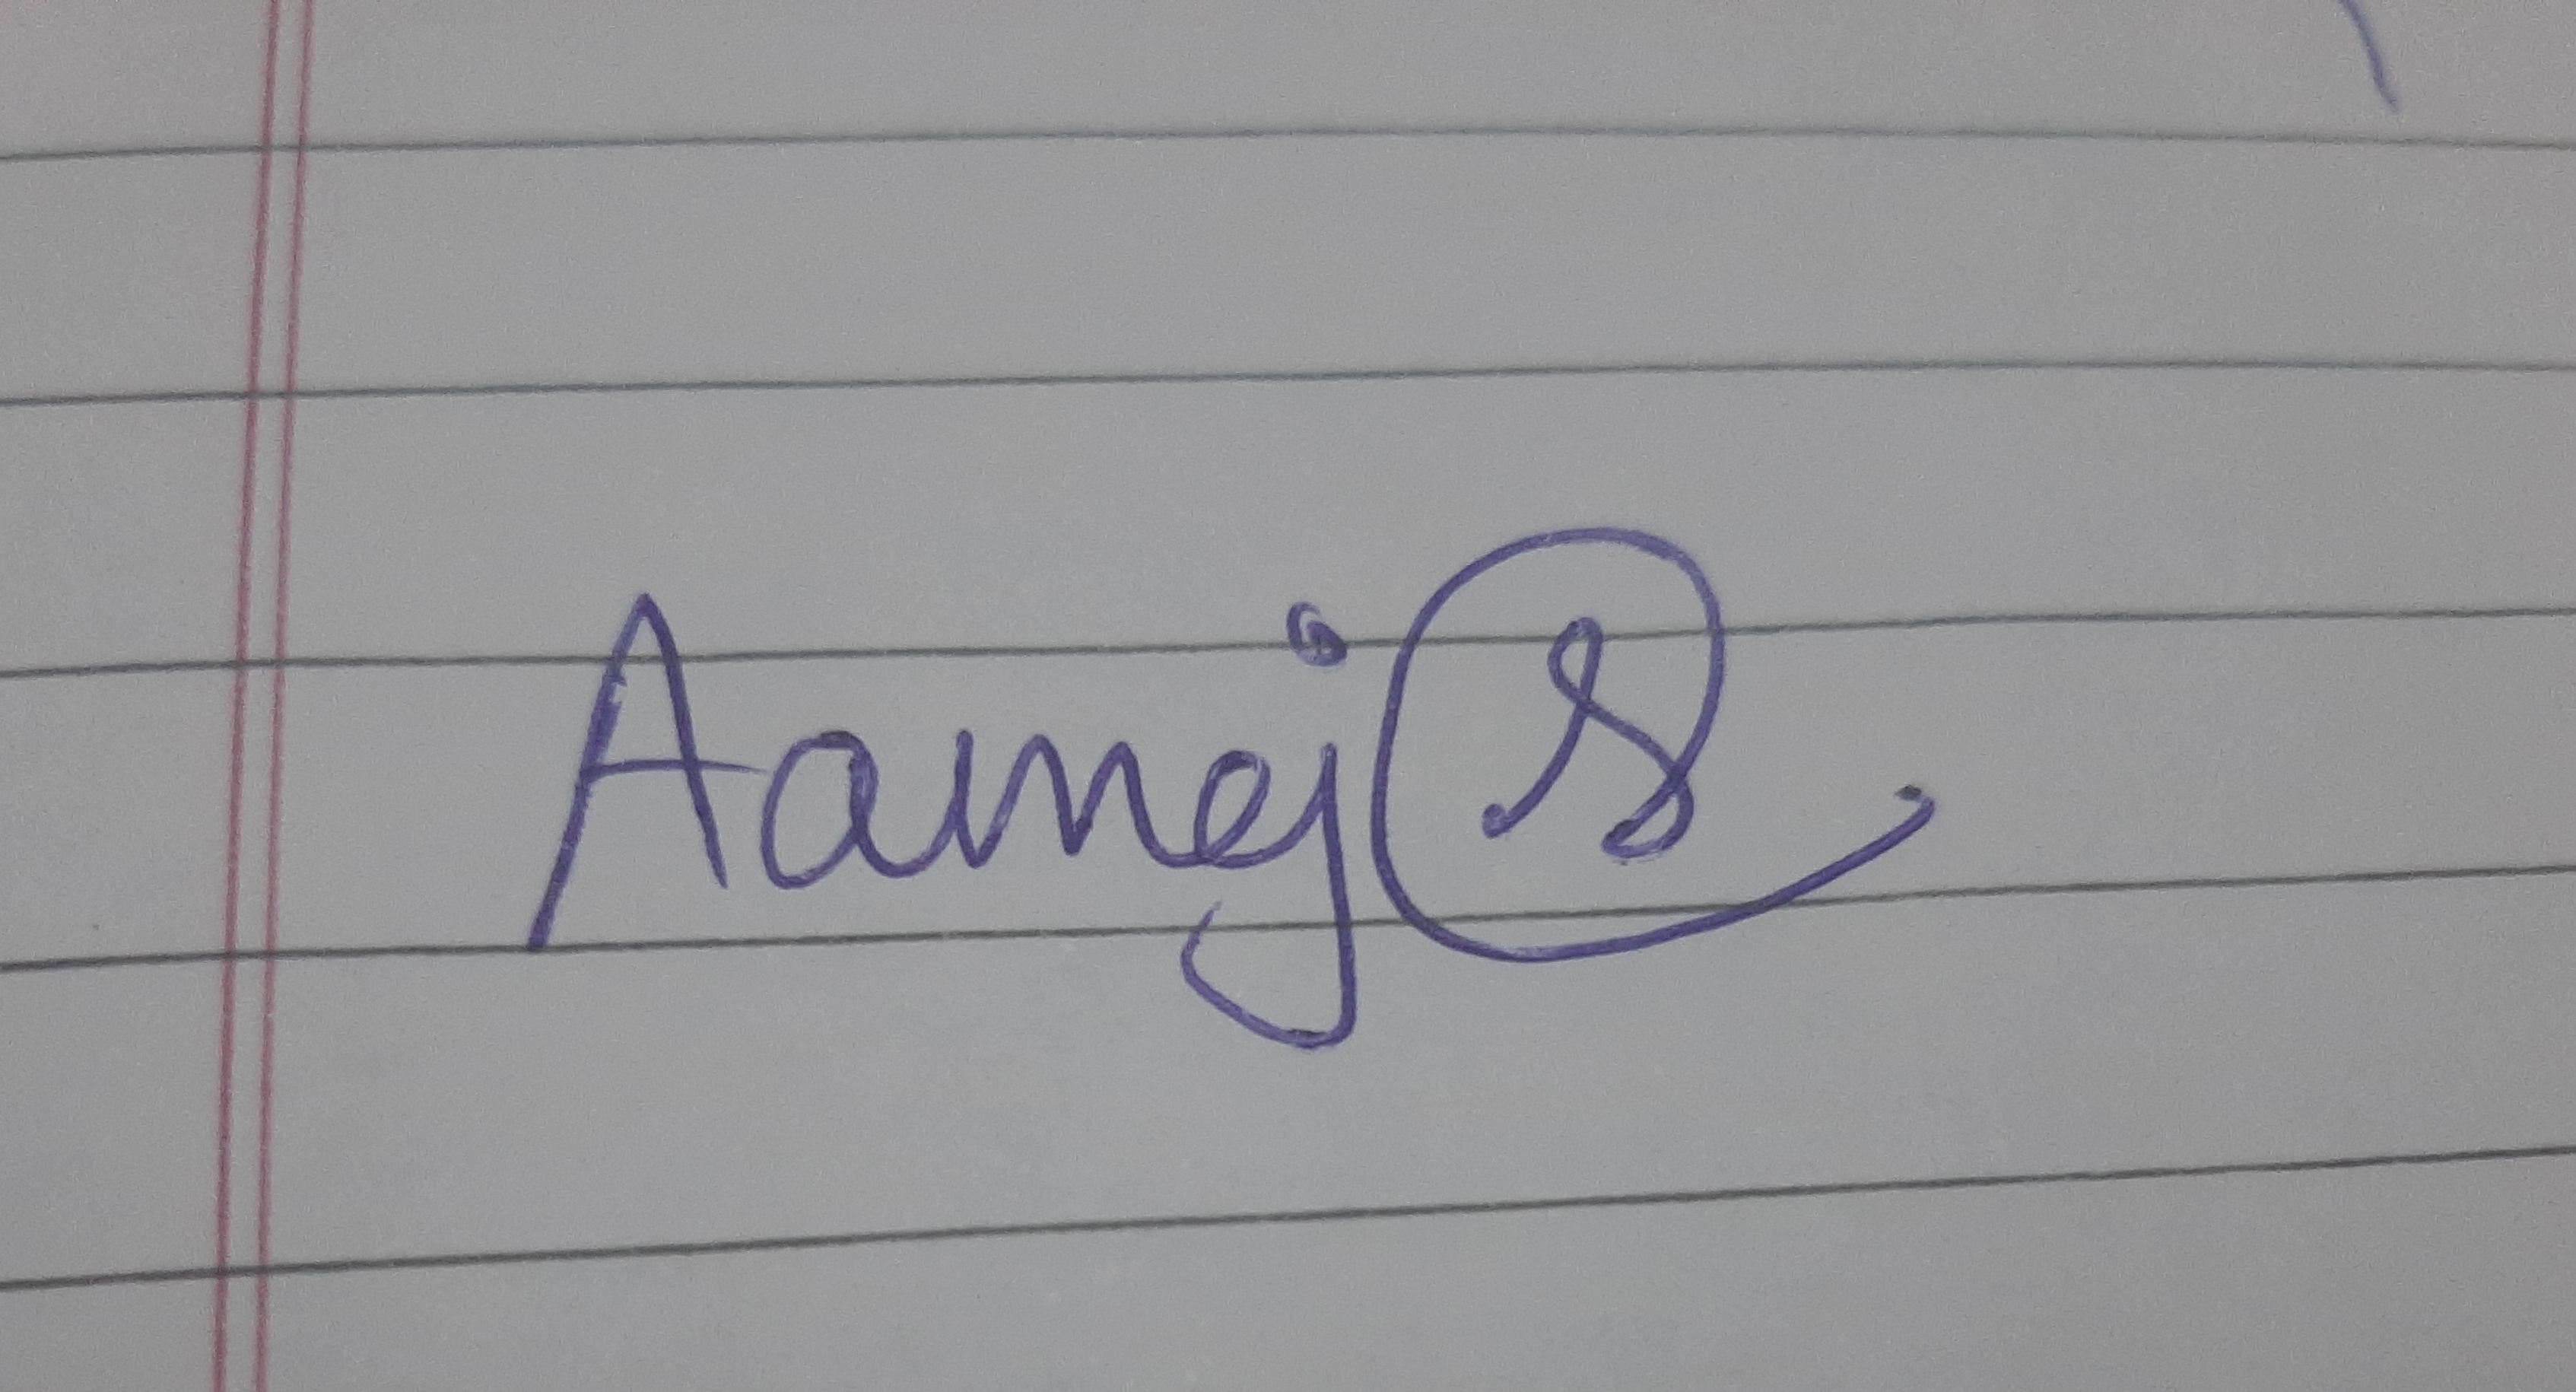 Aamej S